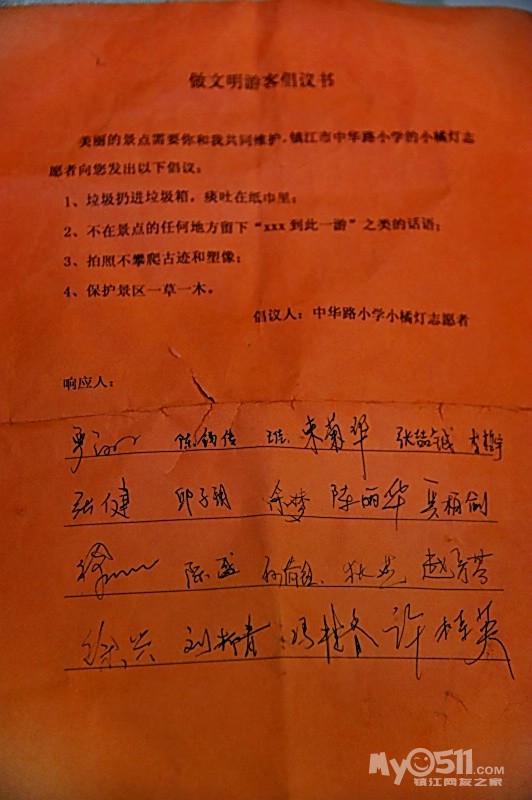 做文明游客倡议书
美丽的景点需要你和我共同维护，镇江市中华路小学的小橘灯志
愿者向您发出以下倡议：
1、垃圾扔进垃圾箱，痰吐在纸巾里；
2、不在景点的任何地方留下“xxx 到此一游”之类的话语；
3、拍照不攀爬古迹和塑像；
4、保护景区一草一木。
倡议人：中华路小学小橘灯志愿者
响应人：
朱菊华
张健 余梦 陈丽华
陈
刘 许桂英
My0511.com
镇江网友之家